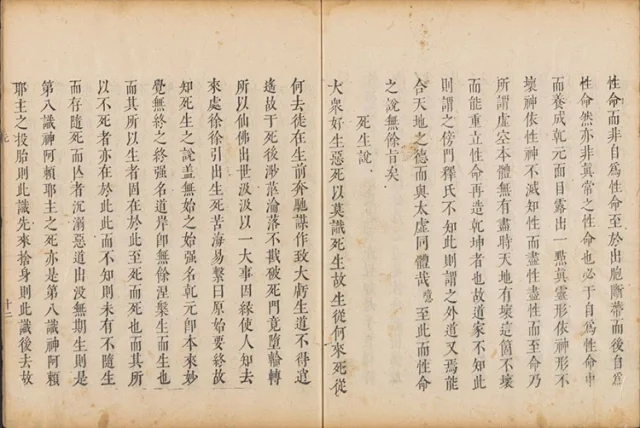 性命而非自爲性命也出胞斷蒂而後自爲
性命然亦非眞常之性命也必于自爲性命中
而養成乾元面目露出一點眞靈形依神形不
壞神依性神不滅知性而盡性盡性而至命乃
所謂虛空本體無有盡時天地有壞這箇不壞
而能重立性命再造乾坤者也故道家不知此
則謂之傍門釋氏不知此則謂之外道又焉能
合天地之德而與太虛同體哉噫至此而性命
之說無餘旨矣
死生說
大衆好生惡死以莫識死生故生從何來死從
何去徒在生前奔馳謀作致大虧生道不得逍
遙故于死後渺茫淪落不戡破死門竟墮輪轉
所以仙佛出世汲汲以一大事因緣使人知去
來處徐徐引出生死苦海易繫曰原始要終故
知死生之說蓋無始之始強名乾元卽本來妙
覺無終之終強名道岸卽無餘涅槃生而生也
而其所以生者固在於此至死而死也而其所
以不死者亦在於此此而不知則未有不隨生
而存隨死而亾者沉溺惡道出沒無期生則是
第八識神阿賴耶主之死亦是第八識神阿賴
耶主之投胎則此識先來捨身則此識後去故
十二